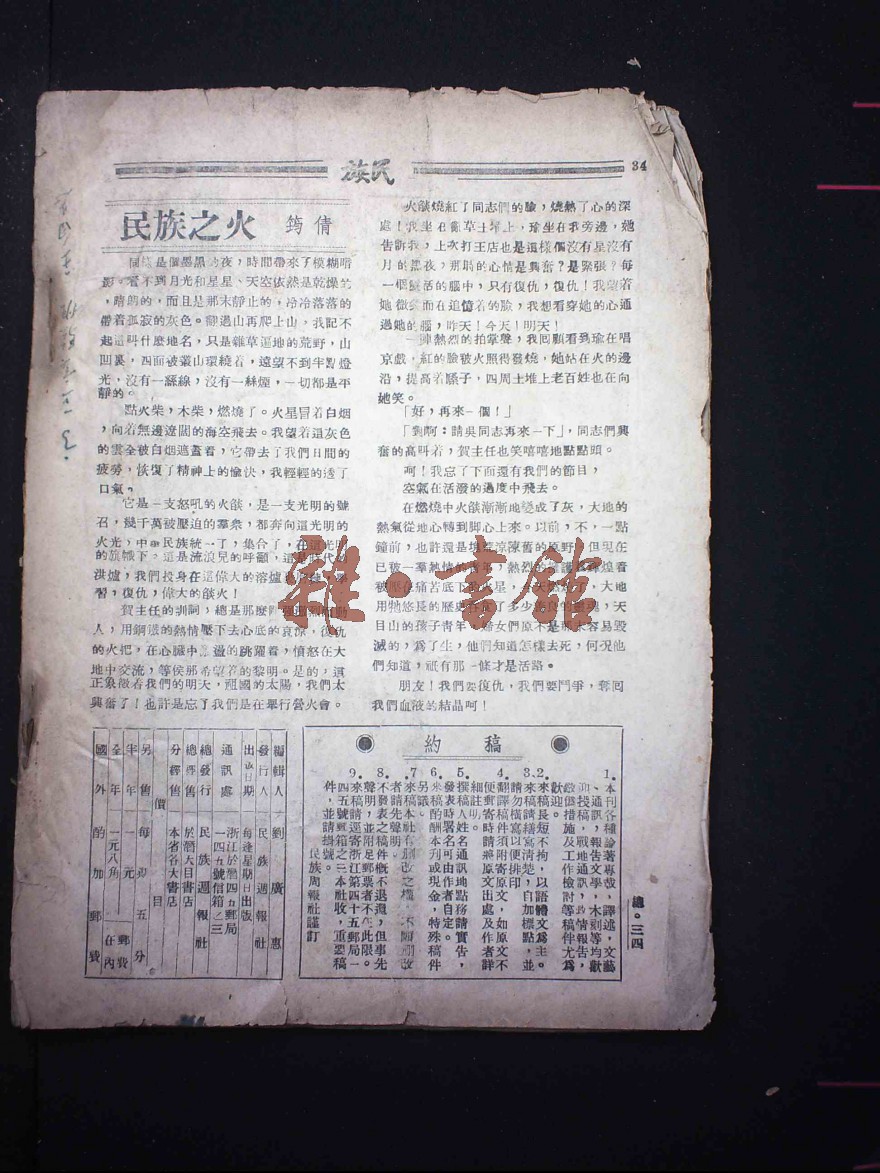 民族
34
民族之火 筠倩
時間帶來了模糊暗
影。看不到月光和星星、天空依然是乾燥的
,晴朗的,而且是那末靜止的,冷冷落落的
帶着孤寂的灰色。翻過山再爬上山,我記不
起這叫什麼地名,只是雜草遍地的荒野,山
凹裏,四面被叢山環繞着,遠望不到半點燈
光,沒有一絲線,沒有一絲煙,一切都是平
靜的。
點火柴,木柴,燃燒了。火星冒着白烟
,向着無邊遼闊的海空飛去。我望着這灰色
的雲全被白烟遮蓋看,它帶去了我們日間的
疲勞,恢復了精神上的愉決,我輕輕的透了
口氣。
它是一支怒吼的火燄,是一支光明的號
召,幾千萬被壓迫的羣衆,都奔向這光明的
火光,中華民族統一了,集合了,在這光明
的旗幟下。這是流浪兒的呼顧,這是時代的
洪爐,我們投身在這偉大的溶爐
習,復仇,偉大的燄火!
賀主任的訓詞,總是那麼
人,用鋼滋的熱情壓下去心底的哀憐,復仇
的火把,在心臟中 的跳躍着,憤怒在大
地中交流,等侯那希望着的黎明。是的,這
正象徵看我們的明天,祖國的太陽,我們太
興奮了!也許是忘了我們是在舉行營火會。
火燄燒紅了同志們的臉,燒熱了心的深
處!我坐在亂草土堆上,瑜坐在我旁邊,她
告訴我,上次打王店也是這樣個沒有星沒有
月的黑夜,那時的心情是興奮?是緊張?每
一個靈活的腦中,只有復仇,復仇!我望着
她微笑而在追憶着的臉,我想看穿她的心通
過她的腦,昨天!今天!明天!
一陣熱烈的拍掌聲,我回顧看到瑜在唱
京戲,紅的臉被火照得發燒,她站在火的邊
沿,提高着嗓子,四周土堆上老百姓也在向
她笑。
「好,再來一個!」
「對啊:請吳同志再來一下」,同志們興
奮的高叫着,賀主任也笑嘻嘻地點點頭。
呵!我忘了下面還有我們的節目,
空氣在活潑的過度中飛去。
在燃燒中火燄漸漸地變成了灰,大地的
熱氣從地心轉到脚心上來。以前,不,一點
鐘前,也許還是塊荒涼陳舊的原野,但現在
已被一羣熱情的青年,熱烈的擁護
大地
用牠悠長的歷史 天
目山的孩子青年,婦女們原不是那末容易毀
滅的,爲了生,他們知道怎樣去死,何况他
們知道,祇有那一條才是活路。
朋友!我們要復仇,我們要鬥爭,奪回
我們血液的結晶呵!
約稿
1.本刊各種論著專載,譯述,文藝
、通訊,報告文學,木刻等均歡
迎投稿、戰地通訊,敵情報告,
政治措施及工作檢討等稿件尤爲
歡迎。
2.來稿長短不拘,以語體文爲主。
3.來稿請繕寫清楚,自加標點,並
請勿橫寫以便排印。
4.翻譯稿件請附寄原文,如原文不
便郵寄時須將原文出處及作者詳
細註明。
5.撰稿人姓名、通訊地點務請實告,
發表時署名可由作者自定。
6.來稿本刊酌酬現金,特殊稿件
另議。
7.來稿本社有删改之權,不願删改
者請先聲明。
8.不發表之稿概不退還,但事先
聲明並附足郵票不在此限。
9.來稿請逕寄浙江第四十五郵局一
四五號信箱之三本社收,重要稿
件,並請掛號。
民族周報社謹訂
總・三四
編輯人 劉廣惠
發行人 民族週報社
出版日期 每逢星期日出版
通訊處 浙江於潛四五郵局
一四五號信箱之三
總發行 民族週報社
總經售 於潛天目書店
分經售 本省各大書店
價目
另售 每期五分
半年 一元 郵費
全年 一元八角 在內
國外酌加郵費
雜・書館